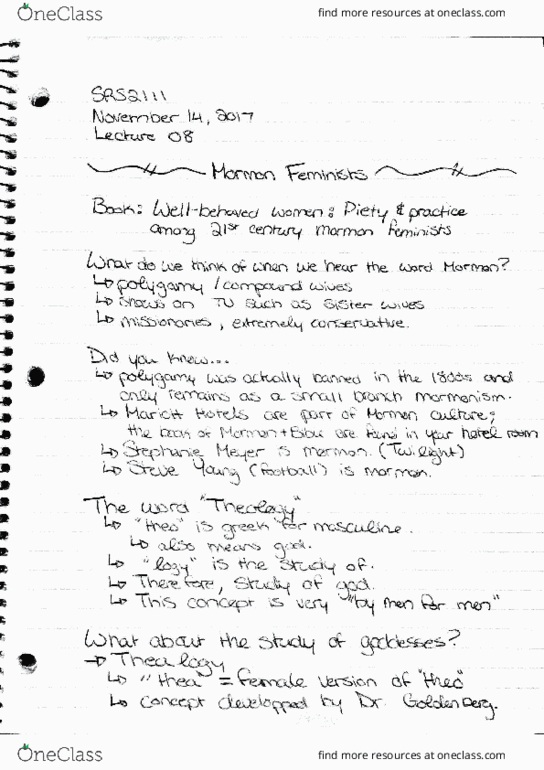 OneClass
find more resources at oneclass.com
SRS2111
November 14, 2017
Lecture 08
Mormon Feminists
Book: Well-behaved women: Piety & practice
among 21st century mormon feminists
What do we think of when we hear the word Mormon?
↳ polygamy / compound wives
↳ shows on TV such as Sister wives
↳ missionaries, extremely conservative.
Did you know...
↳ polygamy was actually banned in the 1800s and
only remains as a small branch mormonism.
↳ Mariott Hotels are part of Mormon culture;
the book of Mormon + Bible are found in your hotel room
↳ Stephanie Meyer is mormon. (Twilight)
↳ Steve Young (football) is mormon.
The word "Theology"
↳ "theo" is greek for masculine.
↳ also means god.
↳ "logy" is the study of.
↳ Therefore, study of god.
↳ This concept is very "by men for men"
What about the study of goddesses?
→ Thealogy
↳ "thea" = female version of "theo"
↳ concept developped by Dr. Goldenberg.
OneClass
find more resources at oneclass.com